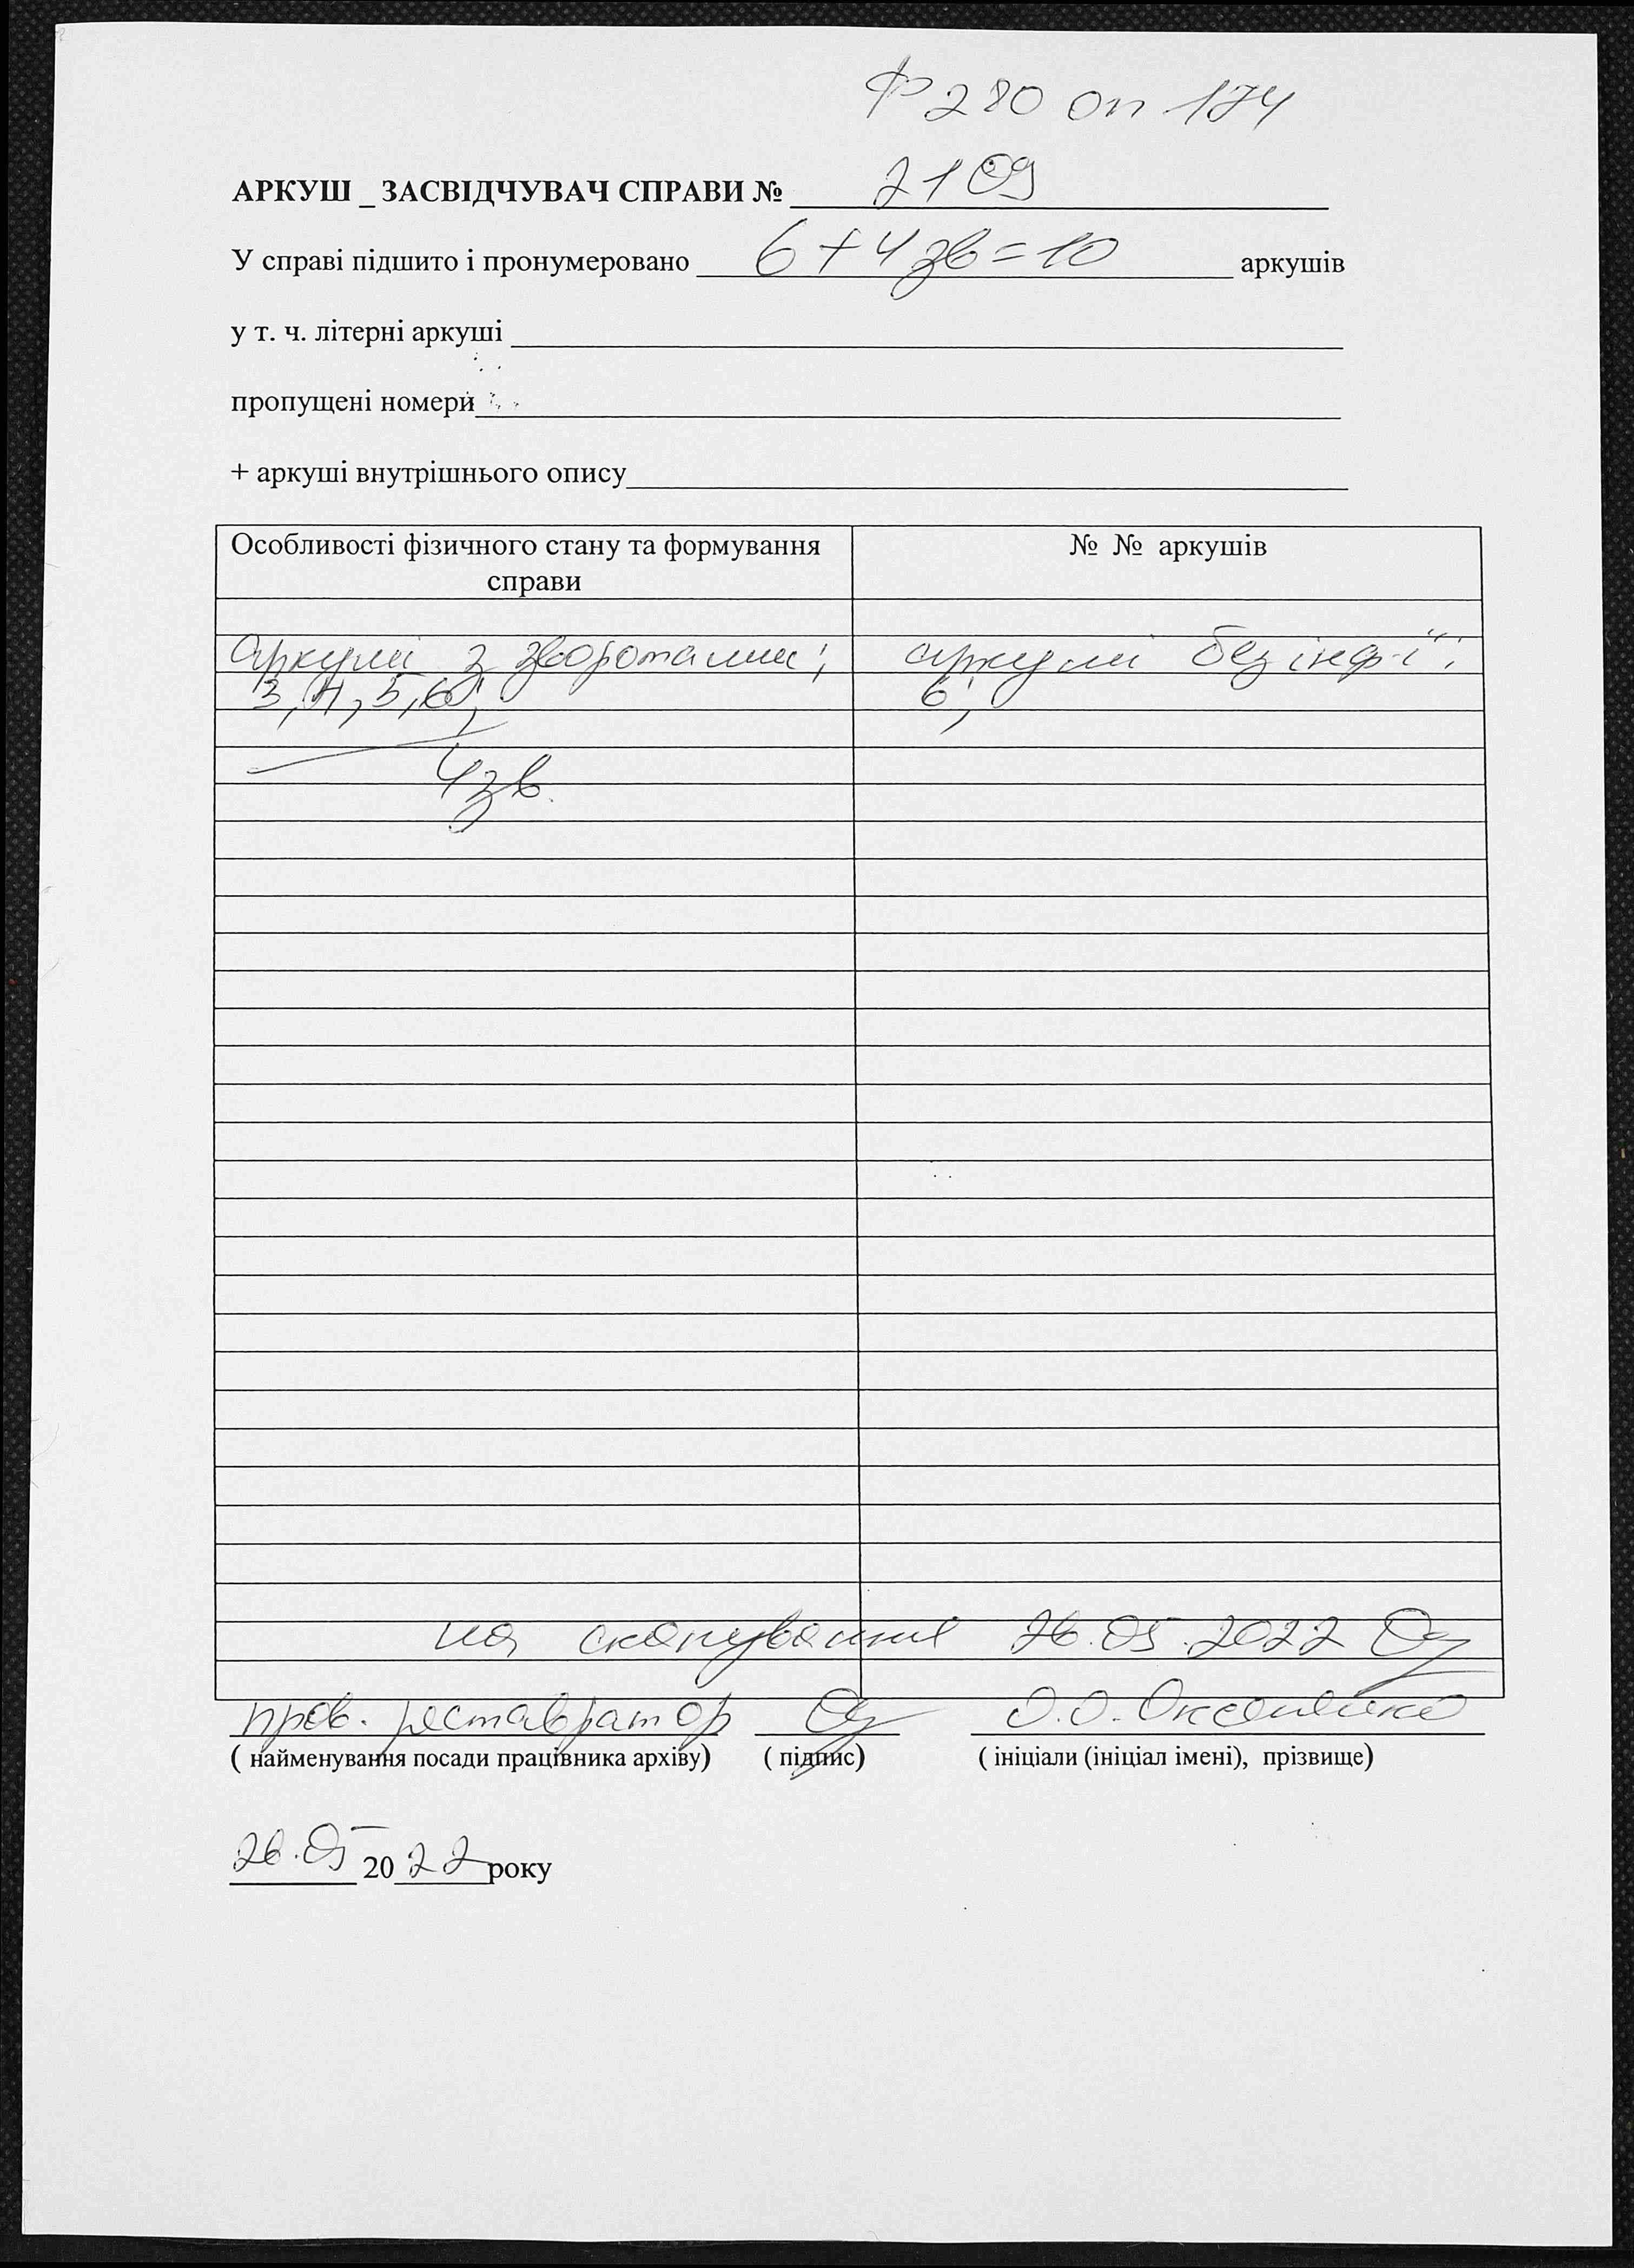 Ф 280 оп 174
АРКУШ _ ЗАСВІДЧУВАЧ СПРАВИ № 2109
У справі підшито і пронумеровано 6 + 4 зв = 10 аркушів
у т. ч. літерні аркуші
пропущені номери
+ аркуші внутрішнього опису
Особливості фізичного стану та формування справи № № аркушів
аркуші з зворотами; аркуші без інф-ї:
3, 4, 5, 6; 6;
4 зв.
на сканування 26.05.2022
пров. реставратор О.О.
( найменування посади працівника архіву) ( підпис) ( ініціали (ініціал імені), прізвище)
26.05 2022 року